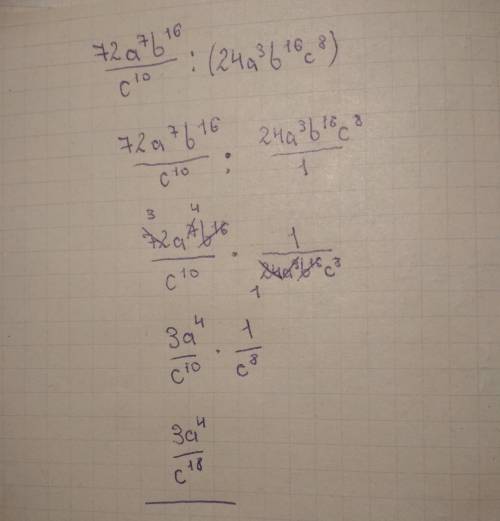 72a⁷b¹⁶/c¹⁰ : (24a³b¹⁶c⁸)
72a⁷b¹⁶/c¹⁰ : 24a³b¹⁶c⁸/1
3 4
72a⁷b¹⁶/c¹⁰ · 1/24a³b¹⁶c³
1
3a⁴/c¹⁰ · 1/c⁸
3a⁴/c¹⁸